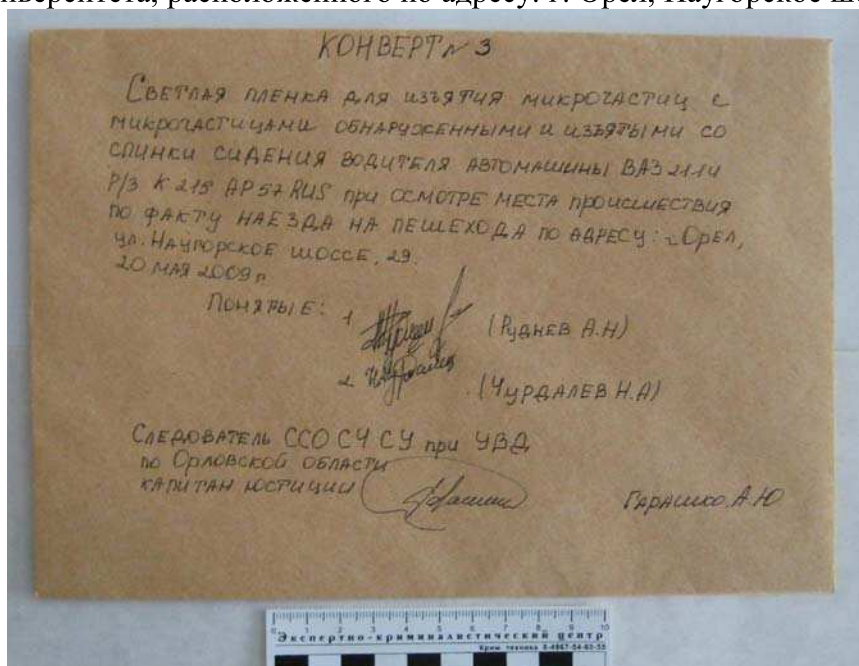 университета, расположенного по адресу: г. Орел, Наугорское ш
КОНВЕРТ № 3
СВЕТЛАЯ ПЛЕНКА ДЛЯ ИЗЪЯТИЯ МИКРОЧАСТИЦ С
МИКРОЧАСТИЦАМИ ОБНАРУЖЕННЫМИ И ИЗЪЯТЫМИ СО
СПИНКИ СИДЕНИЯ ВОДИТЕЛЯ АВТОМАШИНЫ ВАЗ 2114
Р/З К 215 АР 57 RUS при ОСМОТРЕ МЕСТА ПРОИСШЕСТВИЯ
ПО ФАКТУ НАЕЗДА НА ПЕШЕХОДА ПО АДРЕСУ: г. ОРЕЛ,
ул. НАУГОРСКОЕ ШОССЕ, 29.
20 МАЯ 2009 г
ПОНЯТЫЕ: 1 (РУДНЕВ А.Н)
2. (ЧУРДАЛЕВ Н.А)
СЛЕДОВАТЕЛЬ ССО СЧ СУ при УВД
по ОРЛОВСКОЙ ОБЛАСТИ
КАПИТАН ЮСТИЦИИ ГАРАШКО А.Ю
0 1 2 3 4 5 6 7 8 9 10
Экспертно-криминалистический центр